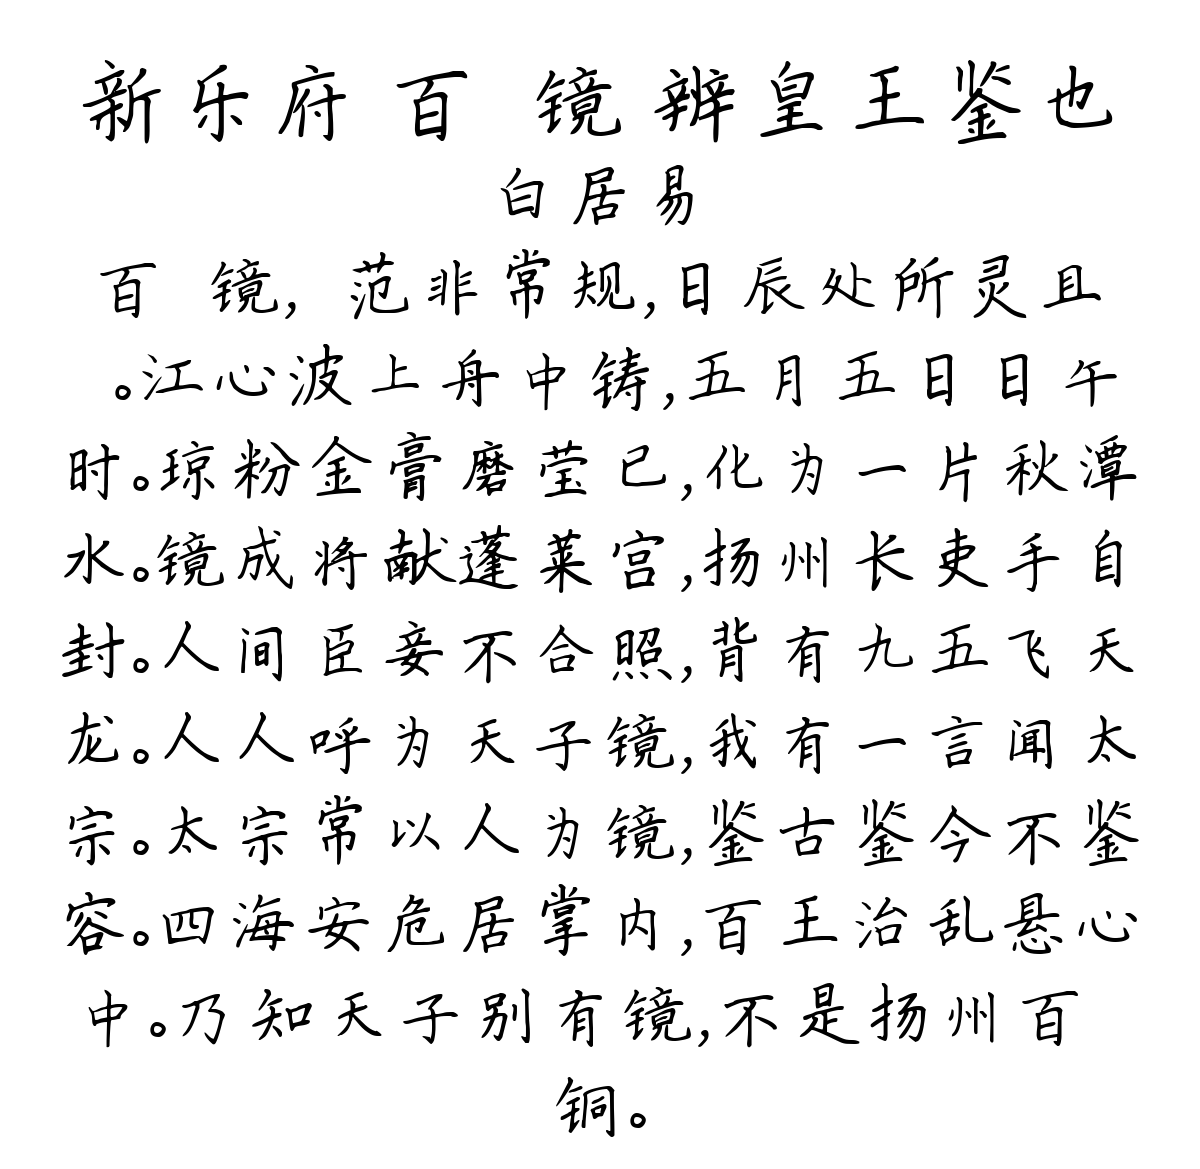 新乐府 百 镜 辨皇王鉴也
白居易
百 镜, 范非常规,日辰处所灵且
。江心波上舟中铸,五月五日日午
时。琼粉金膏磨莹已,化为一片秋潭
水。镜成将献蓬莱宫,扬州长吏手自
封。人间臣妾不合照,背有九五飞天
龙。人人呼为天子镜,我有一言闻太
宗。太宗常以人为镜,鉴古鉴今不鉴
容。四海安危居掌内,百王治乱悬心
中。乃知天子别有镜,不是扬州百
铜。